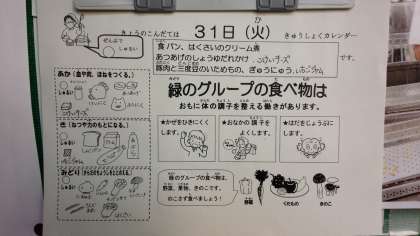 きょうのこんだては 31日(火) きゅうしょくカレンダー
か
ぜんぶで
しゅるい
食パン、はくさいのクリーム煮
あつあげのしょうゆだれかけ、こざかなチーズ
豚肉と三度豆のいためもの、ぎゅうにゅう、いちごジャム
です。
あか(血や肉、ほねをつくる。)
しゅるい
き(ねつや力のもとになる。)
しゅるい
みどり(からだのちょうしをととのえる。)
しゅるい
緑のグループの食べ物は
おもに体の調子を整える働きがあります。
★かぜをひきにくく
します。
★おなかの調子を
よくします。
★はだをじょうぶに
します。
緑のグループの食べ物は、
野菜、果物、きのこです。
のこさず食べましょう!
野菜
くだもの
きのこ